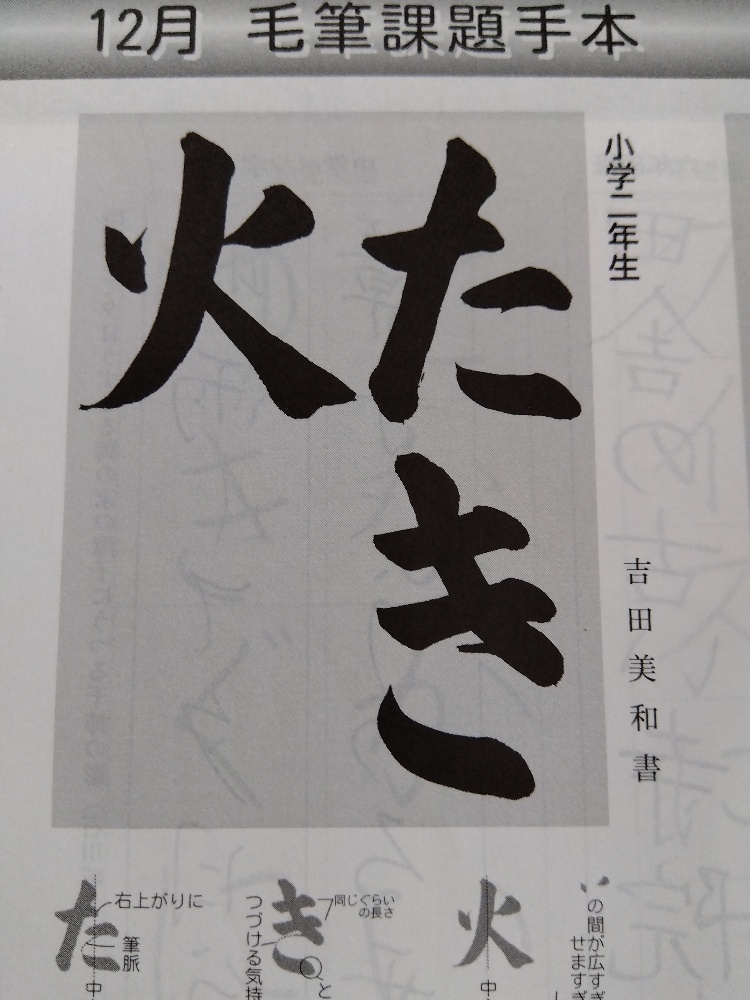 12月 毛筆課題手本
小学二年生
たき
火
吉田美和書
た
右上がりに
筆脈
中
き
同じぐらい
の長さ
つづける気持
と
火
中
の間が広すぎ
せますぎ